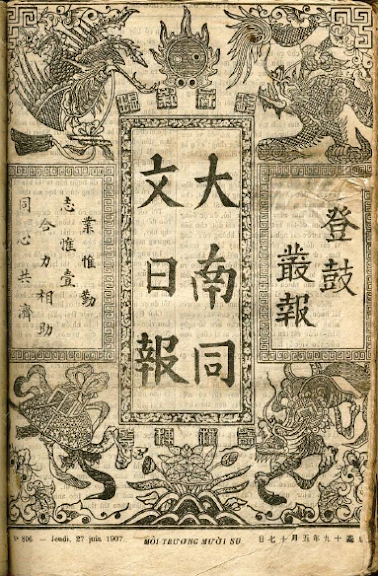 登鼓
叢報
大南同
文日報
業惟勤
志惟壹
合力相助
同心共濟
806 — Jeudi, 27 juin 1907.
MỖI TRƯƠNG MƯỜI SU
十九年五月十七日